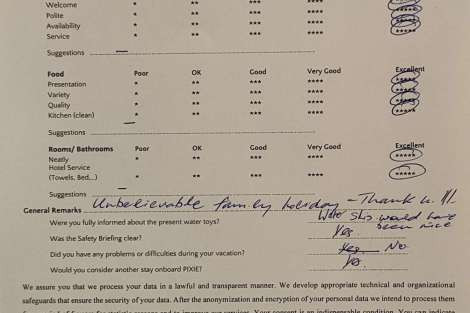 Welcome * ** *** **** *****
Polite * ** *** **** *****
Availability * ** *** **** *****
Service * ** *** **** *****
Suggestions —
Food Poor OK Good Very Good Excellent
Presentation * ** *** **** *****
Variety * ** *** **** *****
Quality * ** *** **** *****
Kitchen (clean) * ** *** **** *****
Suggestions —
Rooms/ Bathrooms Poor OK Good Very Good Excellent
Neatly * ** *** **** *****
Hotel Service
(Towels, Bed,..) * ** *** **** *****
Suggestions —
General Remarks Unbelievable family holiday - Thank u !!
Were you fully informed about the present water toys? Water slip would have been nice
Was the Safety Briefing clear? Yes
Did you have any problems or difficulties during your vacation? Yes No
Would you consider another stay onboard PIXIE? Yes.
We assure you that we process your data in a lawful and transparent manner. We develop appropriate technical and organizational
safeguards that ensure the security of your data. After the anonymization and encryption of your personal data we intend to process them